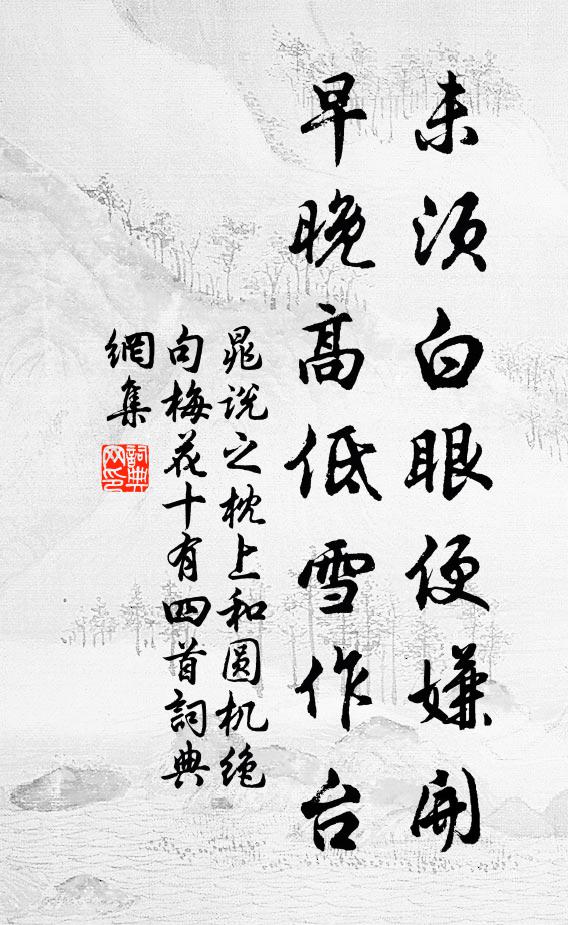 未须白眼便嫌開
早晚高低雪作台
晁说之枕上和圆机绝
句梅花十有四首詞典
網集
詞典
网印